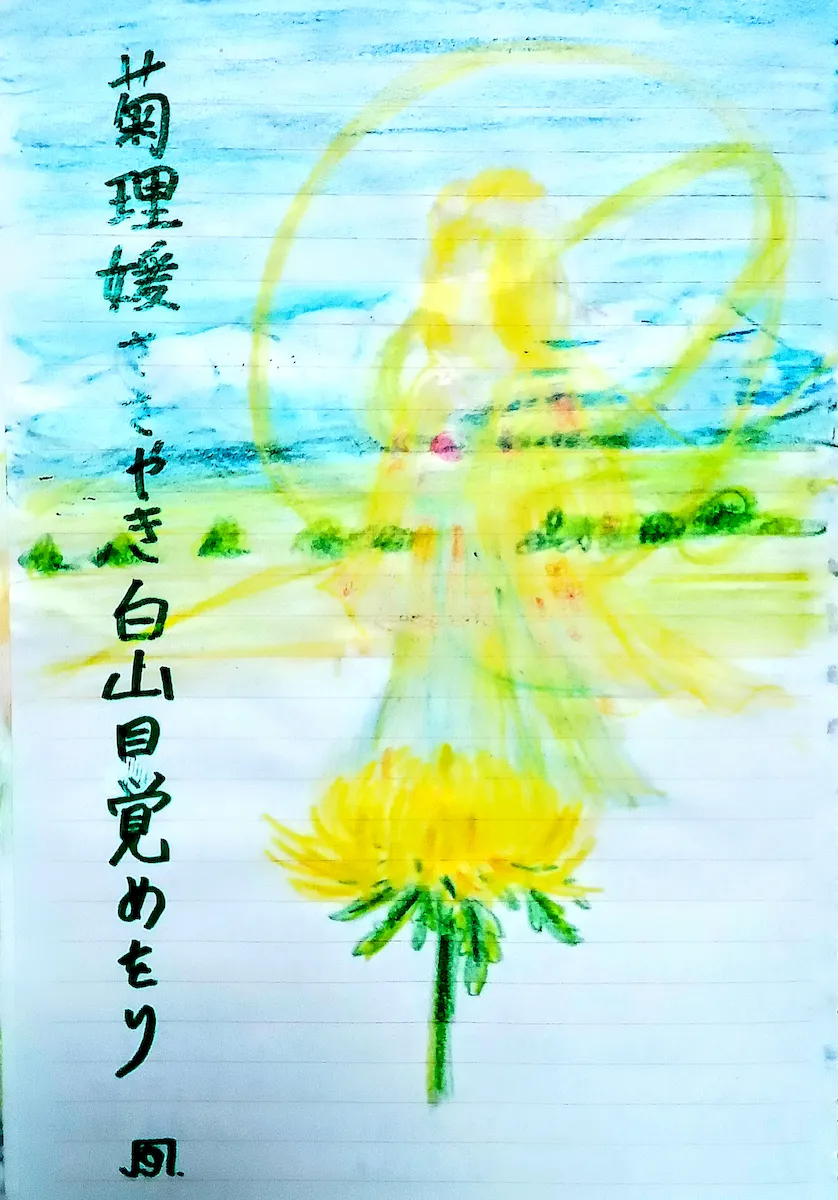 菊理媛ささやき白山目覚めをり